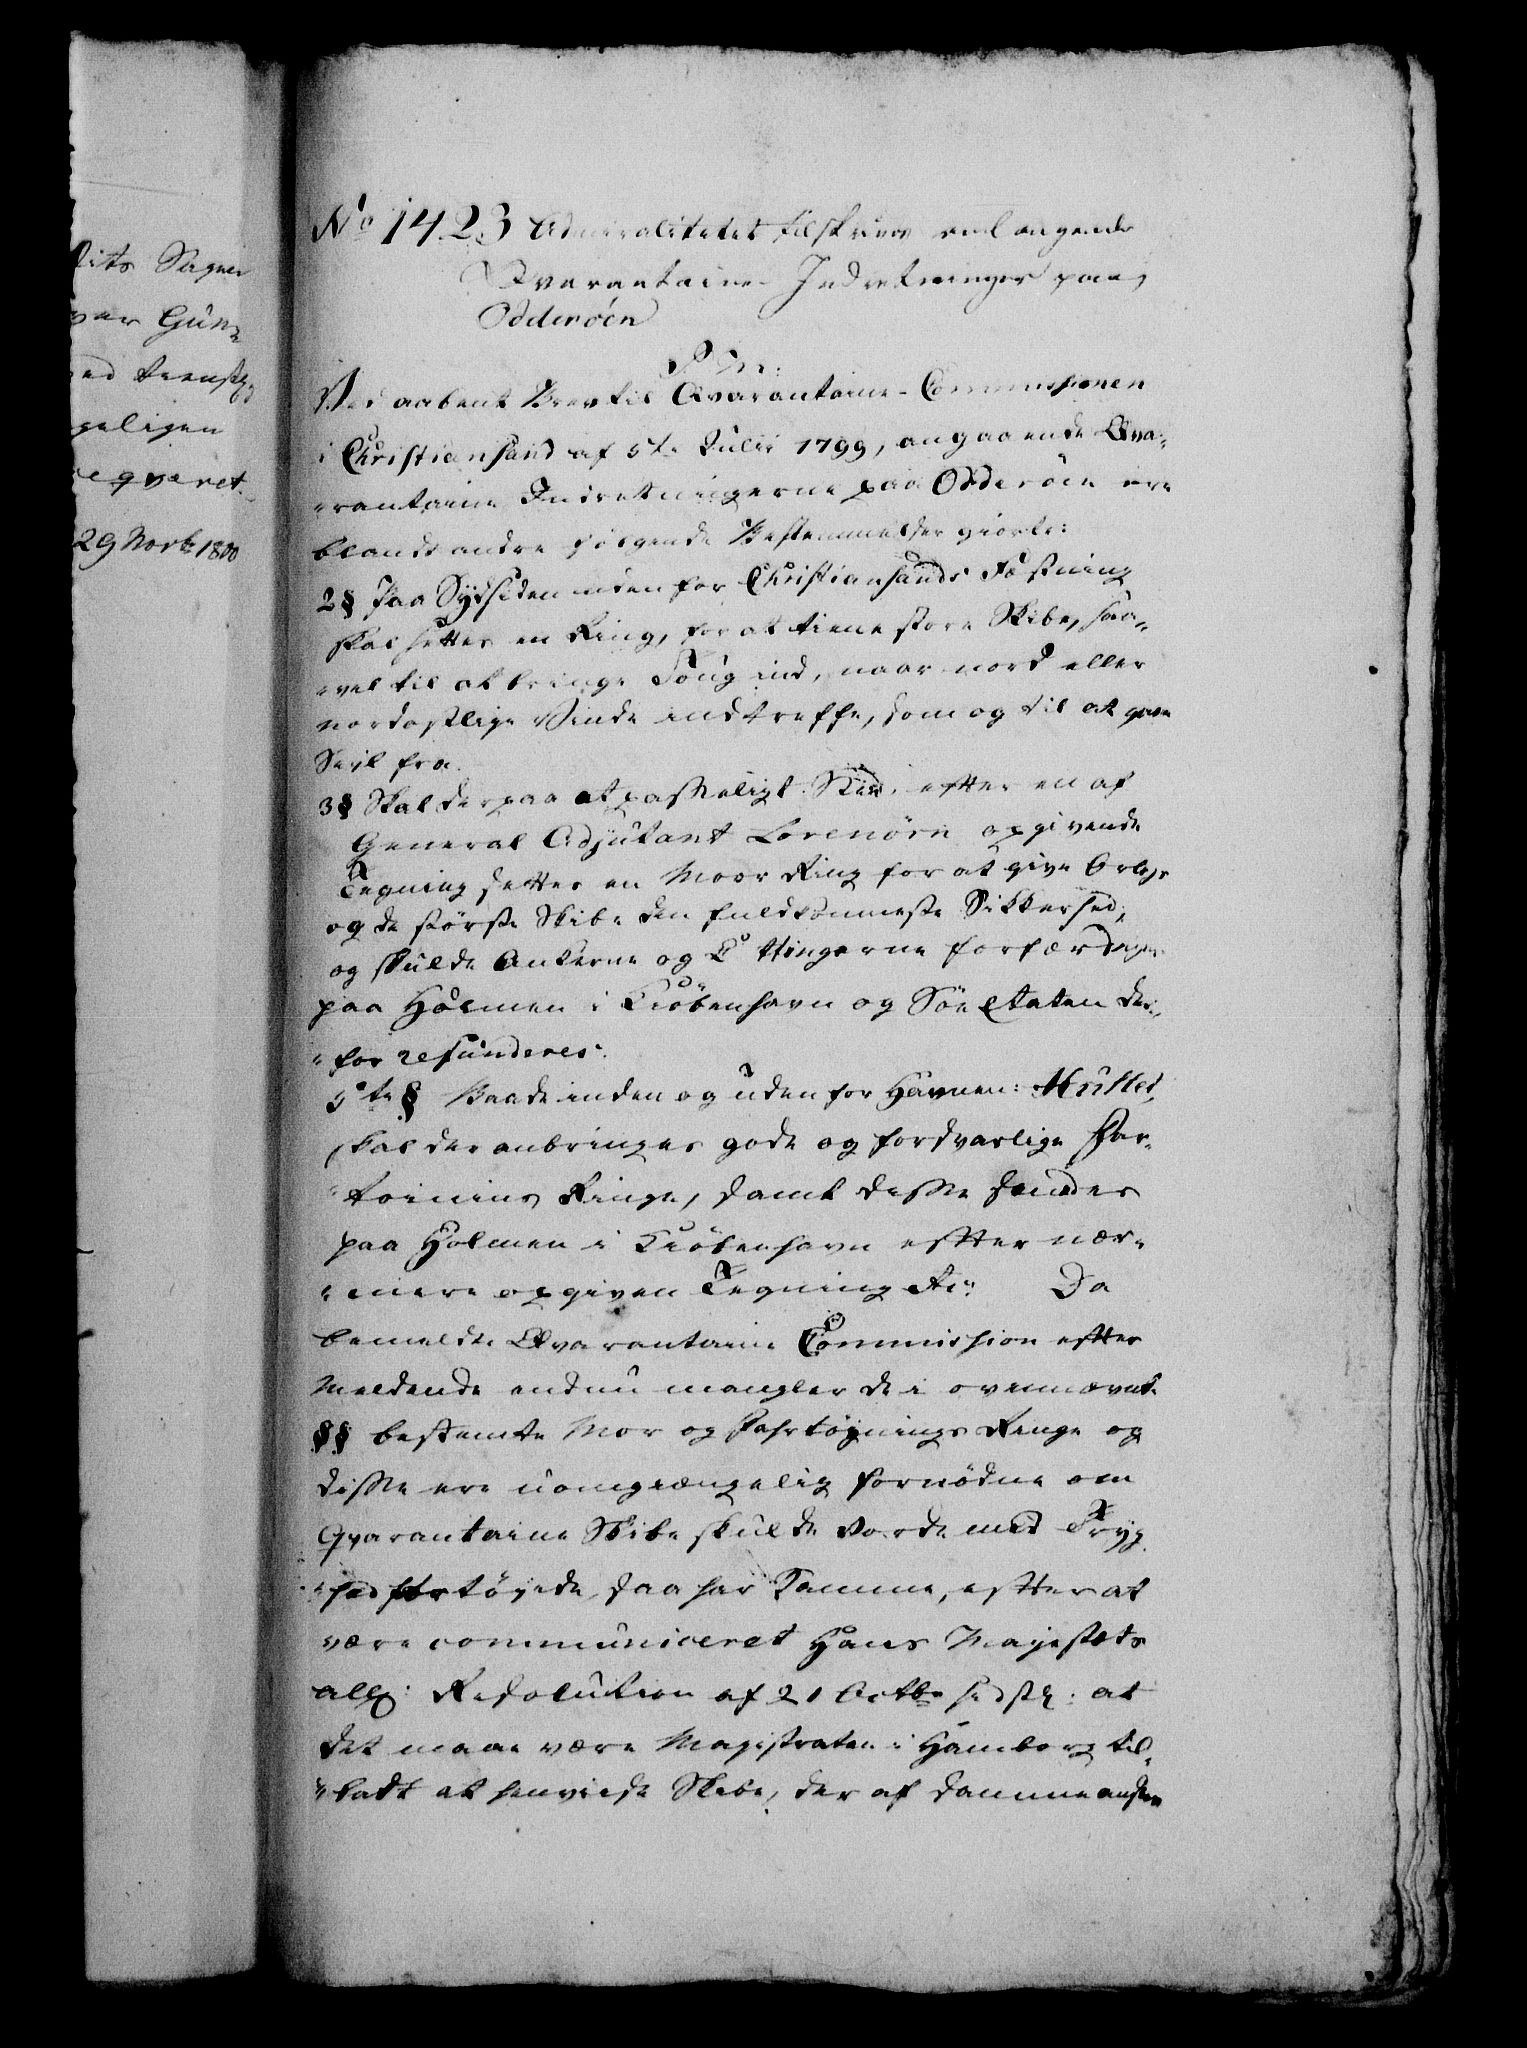 dits Sagen
ver Gun-
ed tienstl:
geligen
eqveret.
29 Novbr 1800
No 1423 Admiralitetet tilskrives anlangende
Qvarantaine-Indretninger paa
Odderøen
P. M.
Ved aabent Brev til Qvarantaine-Commissionen
i Christiansand af 5te Julii 1799, angaaende Qva-
rantaine Indretningerne paa Odderöen ere
blandt andre følgende Bestemmelser giorte:
2§ Paa Sydsiden uden for Christiansands Fæstning
skal settes en Ring, for at tiene store Skibe, saa-
vel til at bringe Toug ind, naar nord eller
nordostlige Vinde indtreffe, som og til at gaae
Seyl fra.
3§ Skal der paa et passeligt Sted, efter en af
General Adjutant Lövenörn opgivende
Tegning settes en Moor Ring for at give Orlogs
og de største Skibe den fuldkomneste Sikkerhed,
og skulde Ankerne og Kiettingerne forfærdiges
paa Holmen i Kiöbenhavn og Söe Etaten der-
for refunderes.
5te § Baade inden og uden for Havnen:
skal der anbringes gode og forsvarlige For-
töinings Ringe, samt disse sendes
paa Holmen i Kiöbenhavn efter nær-
mere opgiven Tegning etc: Da
bemeldte Qvarantaine Commission efter
Meldende endnu mangler de i ovennævnte
§§ bestemte Mor og Fortöynings Ringe og
disse ere uomgiængelig fornödne om
Qvarantaine Skibe skulde vorde med Tryg-
hed fortöyede, saa har Samme, efter at
være communiceret Hans Majestæts
allg: Resolution af 21 Octbr sidstl: at
det maae være Magistraten i Hamborg til-
ladt at henviise Skibe, der af Samme ansees